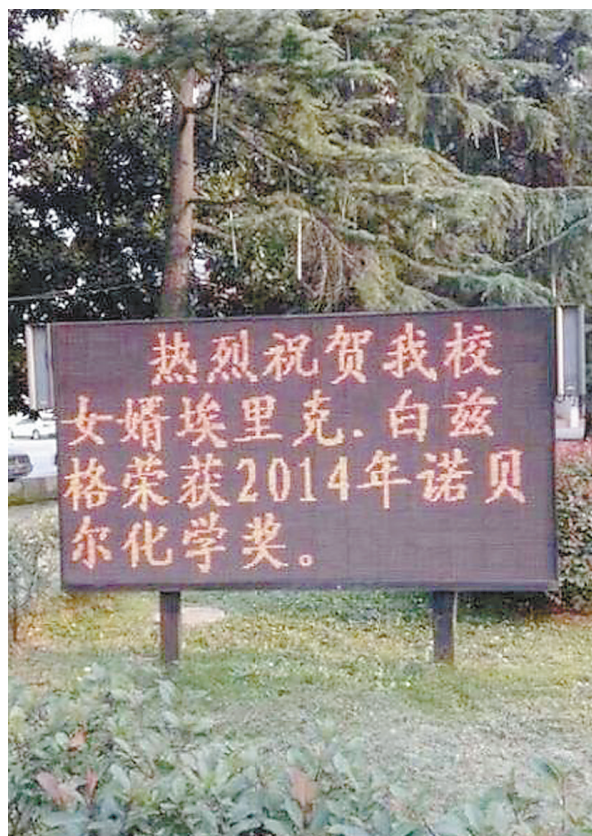 热烈祝贺我校
女婿埃里克.白兹
格荣获2014年诺贝
尔化学奖。